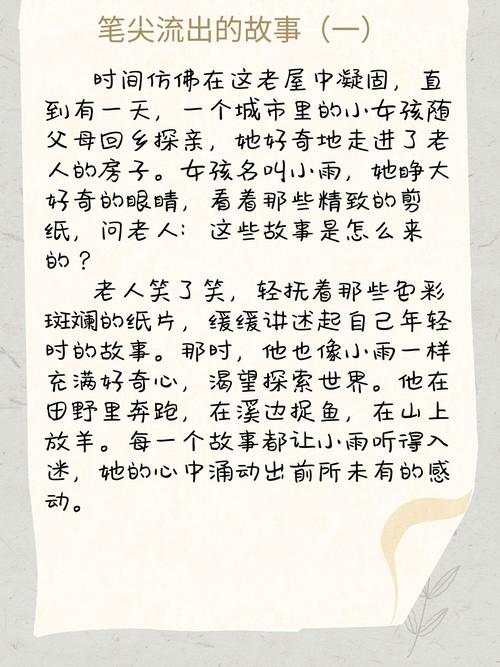 笔尖流出的故事（一）
时间仿佛在这老屋中凝固，直
到有一天，一个城市里的小女孩随
父母回乡探亲，她好奇地走进了老
人的房子。女孩名叫小雨，她睁大
好奇的眼睛，看着那些精致的剪
纸，问老人：这些故事是怎么来
的？
老人笑了笑，轻抚着那些色彩
斑斓的纸片，缓缓讲述起自己年轻
时的故事。那时，他也像小雨一样
充满好奇心，渴望探索世界。他在
田野里奔跑，在溪边捉鱼，在山上
放羊。每一个故事都让小雨听得入
迷，她的心中涌动出前所未有的感
动。